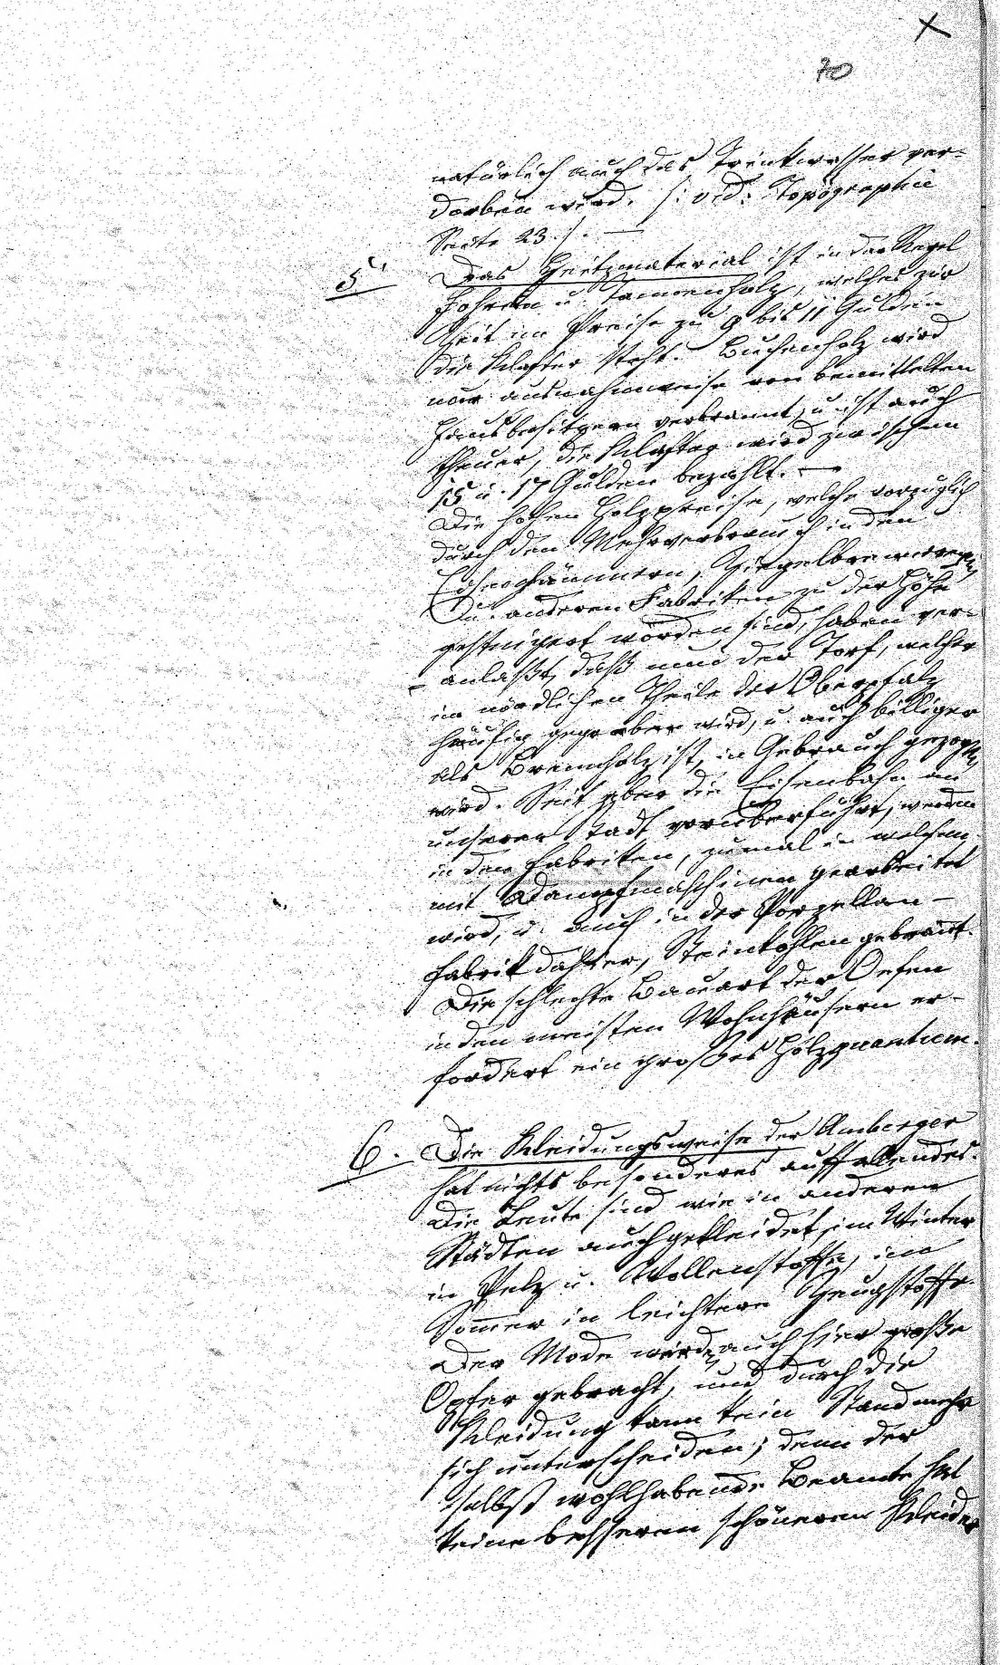 70
natürlich auch das Trinkwasser ver-
dorben wird. /: vid: Topographie
Seite 23 :/. —
5. Das Heitzmaterial ist in der Regel
Fohren u. Tannenholz, welches zur
Zeit im Preise zu 9 bis 11 Gulden
die Klafter steht. Buchenholz wird
nur ausnahmweise von bemittelten
Hausbesitzern verbrannt, u. ist auch
theuer, die Klafter wird zwischen
15 u. 17 Gulden bezahlt. —
Die hohen Holzpreise, welche vorzüglich
durch den Mehrverbrauch in den
Eisenhämmern, Ziegelbrennereyen
u. anderen Fabriken zu der Höhe
gesteigert worden sind, haben ver-
anlaßt, daß nun der Torf, welcher
im nördlichen Theile der Oberpfalz
häufig gegraben wird, u. auch billiger
als Brennholz ist, in Gebrauch gezogen
wird. Seit aber die Eisenbahn an
unserer Stadt vorüberführt, werden
in den Fabriken, zumal in welchen
mit Dampfmaschinen gearbeitet
wird, u. auch in der Porzellan-
fabrik dahier, Steinkohlen gebrannt.
Die schlechte Bauart der Oefen
in den meisten Wohnhäusern er-
fordert ein großes Holzquantum.
6. Die Kleidungsweise der Amberger
hat nichts besonderes auffallendes.
Die Leute sind wie in anderen
Städten auch gekleidet, im Winter
in Pelz u. Wollenstoffe, im
Sommer in leichtere Zeugstoffe.
Der Mode werden auch hier große
Opfer gebracht, und durch die
Kleidung kann kein Stand mehr
sich unterscheiden; denn der
selbst wohlhabende Beamte hat
keine besseren schöneren Kleider